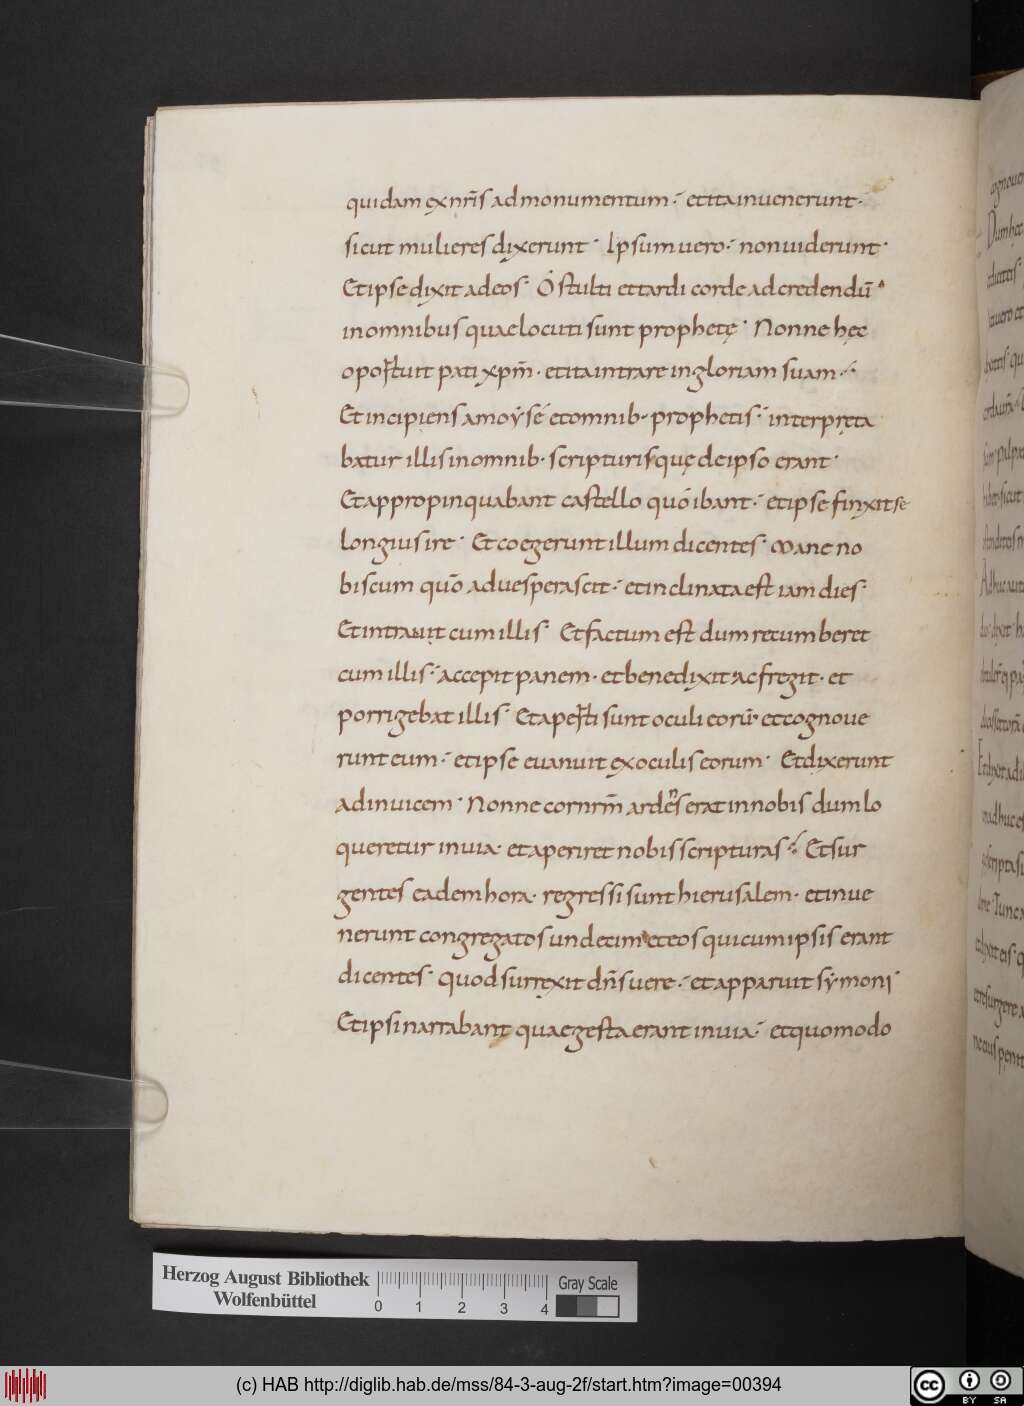 quidam ex nr̄is ad monumentum · et ita inuenerunt ·
sicut mulieres dixerunt · Ipsum uero · non uiderunt ·
Et ipse dixit ad eos · Ó stulti et tardi corde ad credendū ·
in omnibus quae locuti sunt prophetę · Nonne hęc
oportuit pati xpm̄ · et ita intrare in gloriam suam ·
Et incipiens a moÿse et omnib · prophetis · interpręta
batur illis in omnib · scripturis quę de ipso erant ·
Et appropinquabant castello quó ibant · et ipse finxit se
longius ire · Et coegerunt illum dicentes · Mane no
biscum quō aduesperascit · et inclinata est iam dies ·
Et intrauit cum illis · Et factum est dum recumberet
cum illis · accepit panem · et benedixit ac fregit · et
porrigebat illis · Et aperti sunt oculi eorū · et cognoue
runt eum · et ipse euanuit ex oculis eorum · Et dixerunt
ad inuicem · Nonne cor nrm̄ ardēs erat in nobis dum lo
queretur in uia · et aperiret nobis scripturas · Et sur
gentes eadem hora · regressi sunt hierusalem · et inue
nerunt congregatos undecim et eos qui cum ipsis erant
dicentes · quod surrexit dn̄s uere · et apparuit sẏmoni ·
Et ipsi narrabant quae gesta erant in uia · et quomodo
Herzog August Bibliothek
Wolfenbüttel
0 1 2 3 4
Gray Scale
(c) HAB http://diglib.hab.de/mss/84-3-aug-2f/start.htm?image=00394
cc BY SA